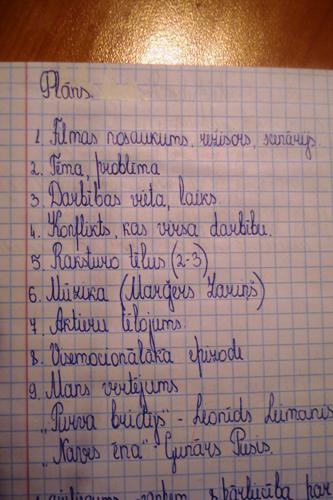 Plāns.
1. Filmas nosaukums, režisors, scenārijs
2. Tēma, problēma
3. Darbības vieta, laiks.
4. Konflikts, kas virza darbību.
5. Raksturo tēlus (2-3)
6. Mūzika (Marģers Zariņš)
7. Aktieru tēlojums.
8. Visemocionālākā epizode
9. Mans vērtējums
"Purva bridējs" - Leonīds Leimanis
"Nāves ēna" Gunārs Piesis.